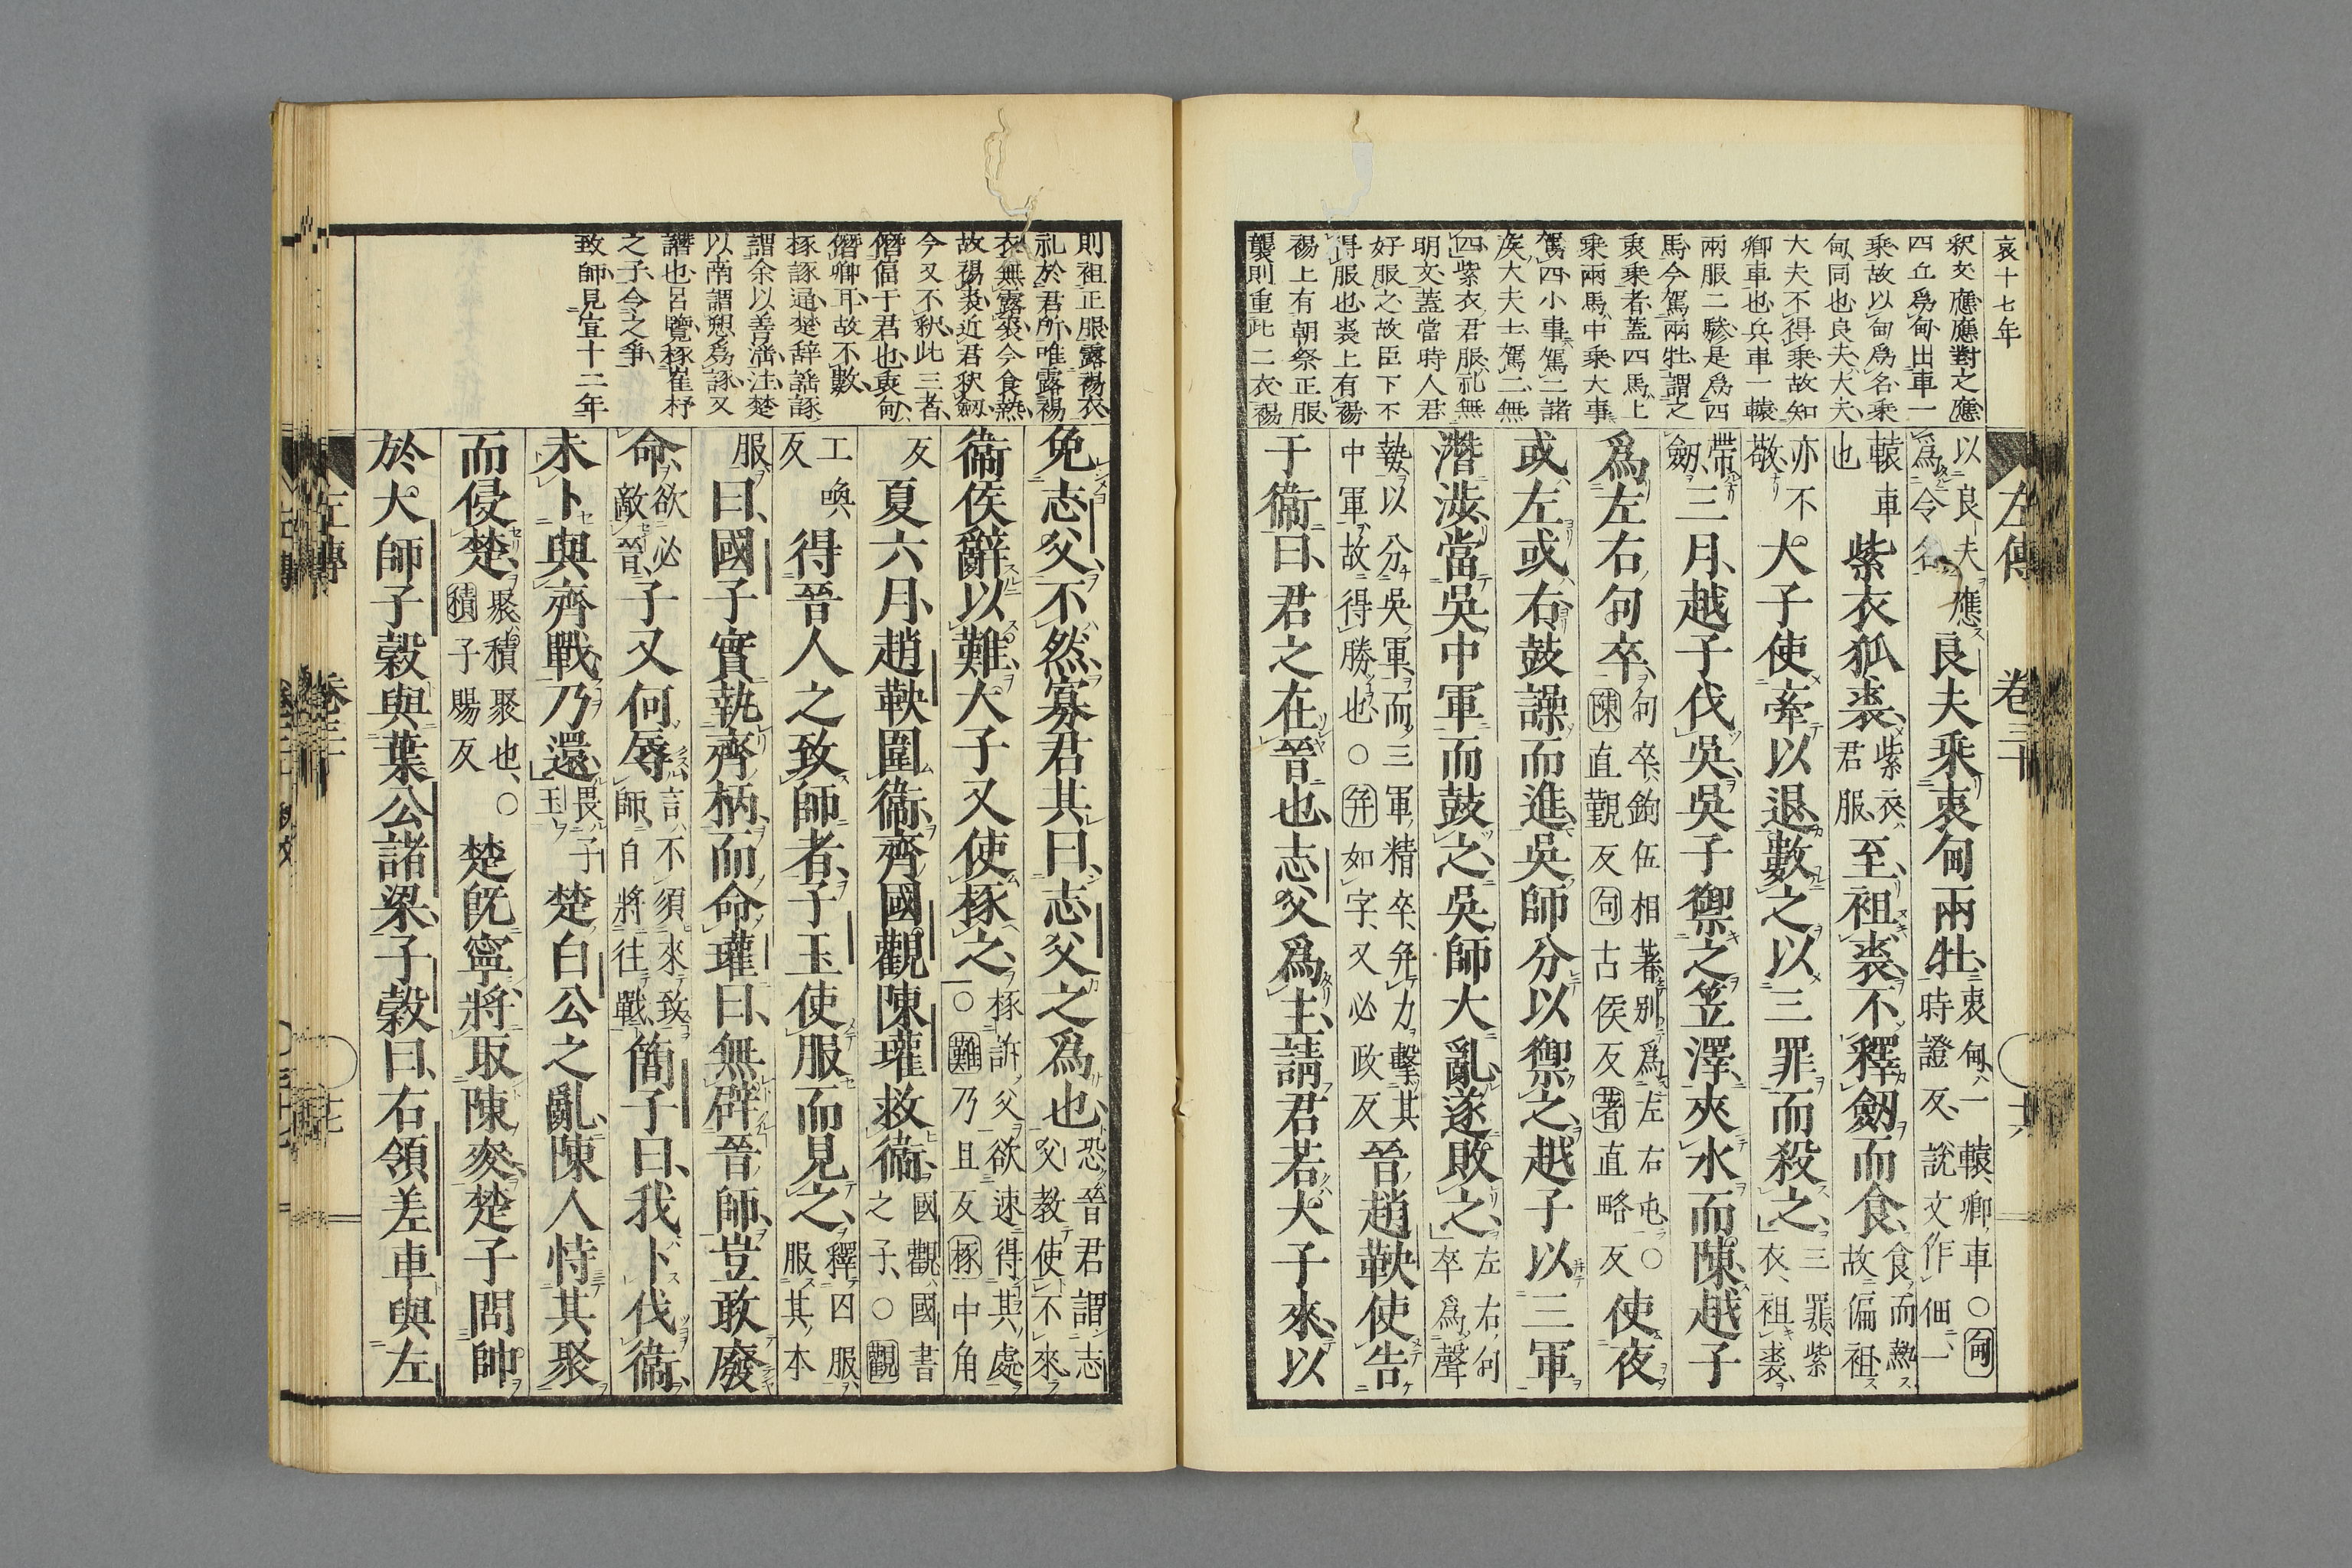 哀十七年
釈文應應對之應
四丘爲甸出車一
乘故以甸爲名乘
甸同也良夫大夫
大夫不得乘故知
卿車也兵車一轅
兩服二驂是爲四
馬今駕兩牡謂之
衷乘者蓋四馬上
乘兩馬中乘大事
駕四小事駕二諸
侯大夫士駕二無
四紫衣君服礼無
明文蓋當時人君
好服之故臣下不
得服也裘上有裼
裼上有朝祭正服
襲則重此二衣裼
左傳 卷三十 十六
以良夫應
爲令名
良夫乘衷甸兩牡
衷甸一轅卿車○甸
時證反説文作佃一
轅車
也
紫衣狐裘
紫衣
君服
至袒裘不釋劒而食
食而熱
故偏袒
亦不
敬
大子使牽以退數之以三罪而殺之
三罪紫
衣袒裘
帶
劒
三月越子伐吳吳子禦之笠澤夾水而陳越子
爲左右句卒
句卒鉤伍相著別爲左右屯○
陳直觀反句古侯反著直略反
使夜
或左或右鼓譟而進吳師分以禦之越子以三軍
潛渉當吳中軍而鼓之吳師大亂遂敗之
左右句
卒爲聲
勢以分吳軍而三軍精卒幷力擊其
中軍故得勝也○幷如字又必政反
晉趙鞅使告
于衞曰君之在晉也志父爲主請君若大子來以
則袒正服露裼衣
礼於君所唯露裼
衣無露裘今食熱
故裼裘近君釈劒
今又不釈此三者
僭偪于君也衷甸
僭卿耳故不數
椓諑通楚辞謡諑
謂余以善淫注楚
以南謂愬爲諑又
譖也呂覽椓崔杼
之子令之爭
致師見宣十二年
免志父不然寡君其曰志父之爲也
恐晉君謂志
父教使不來
衞侯辭以難大子又使椓之
椓訴父欲速得其處
○難乃且反椓中角
反
夏六月趙鞅圍衞齊國觀陳瓘救衞
國觀國書
之子○觀
工喚
反
得晉人之致師者子玉使服而見之
釋囚服
服其本
服
曰國子實執齊柄而命瓘曰無辟晉師豈敢廢
命
欲必
敵晉
子又何辱
言不須來致
師自將往戰
簡子曰我卜伐衞
未卜與齊戰乃還
畏子
玉
楚白公之亂陳人恃其聚
而侵楚
聚積聚也○
積子賜反
楚旣寧將取陳麥楚子問帥
於大師子穀與葉公諸梁子穀曰右領差車與左
左傳 卷三十